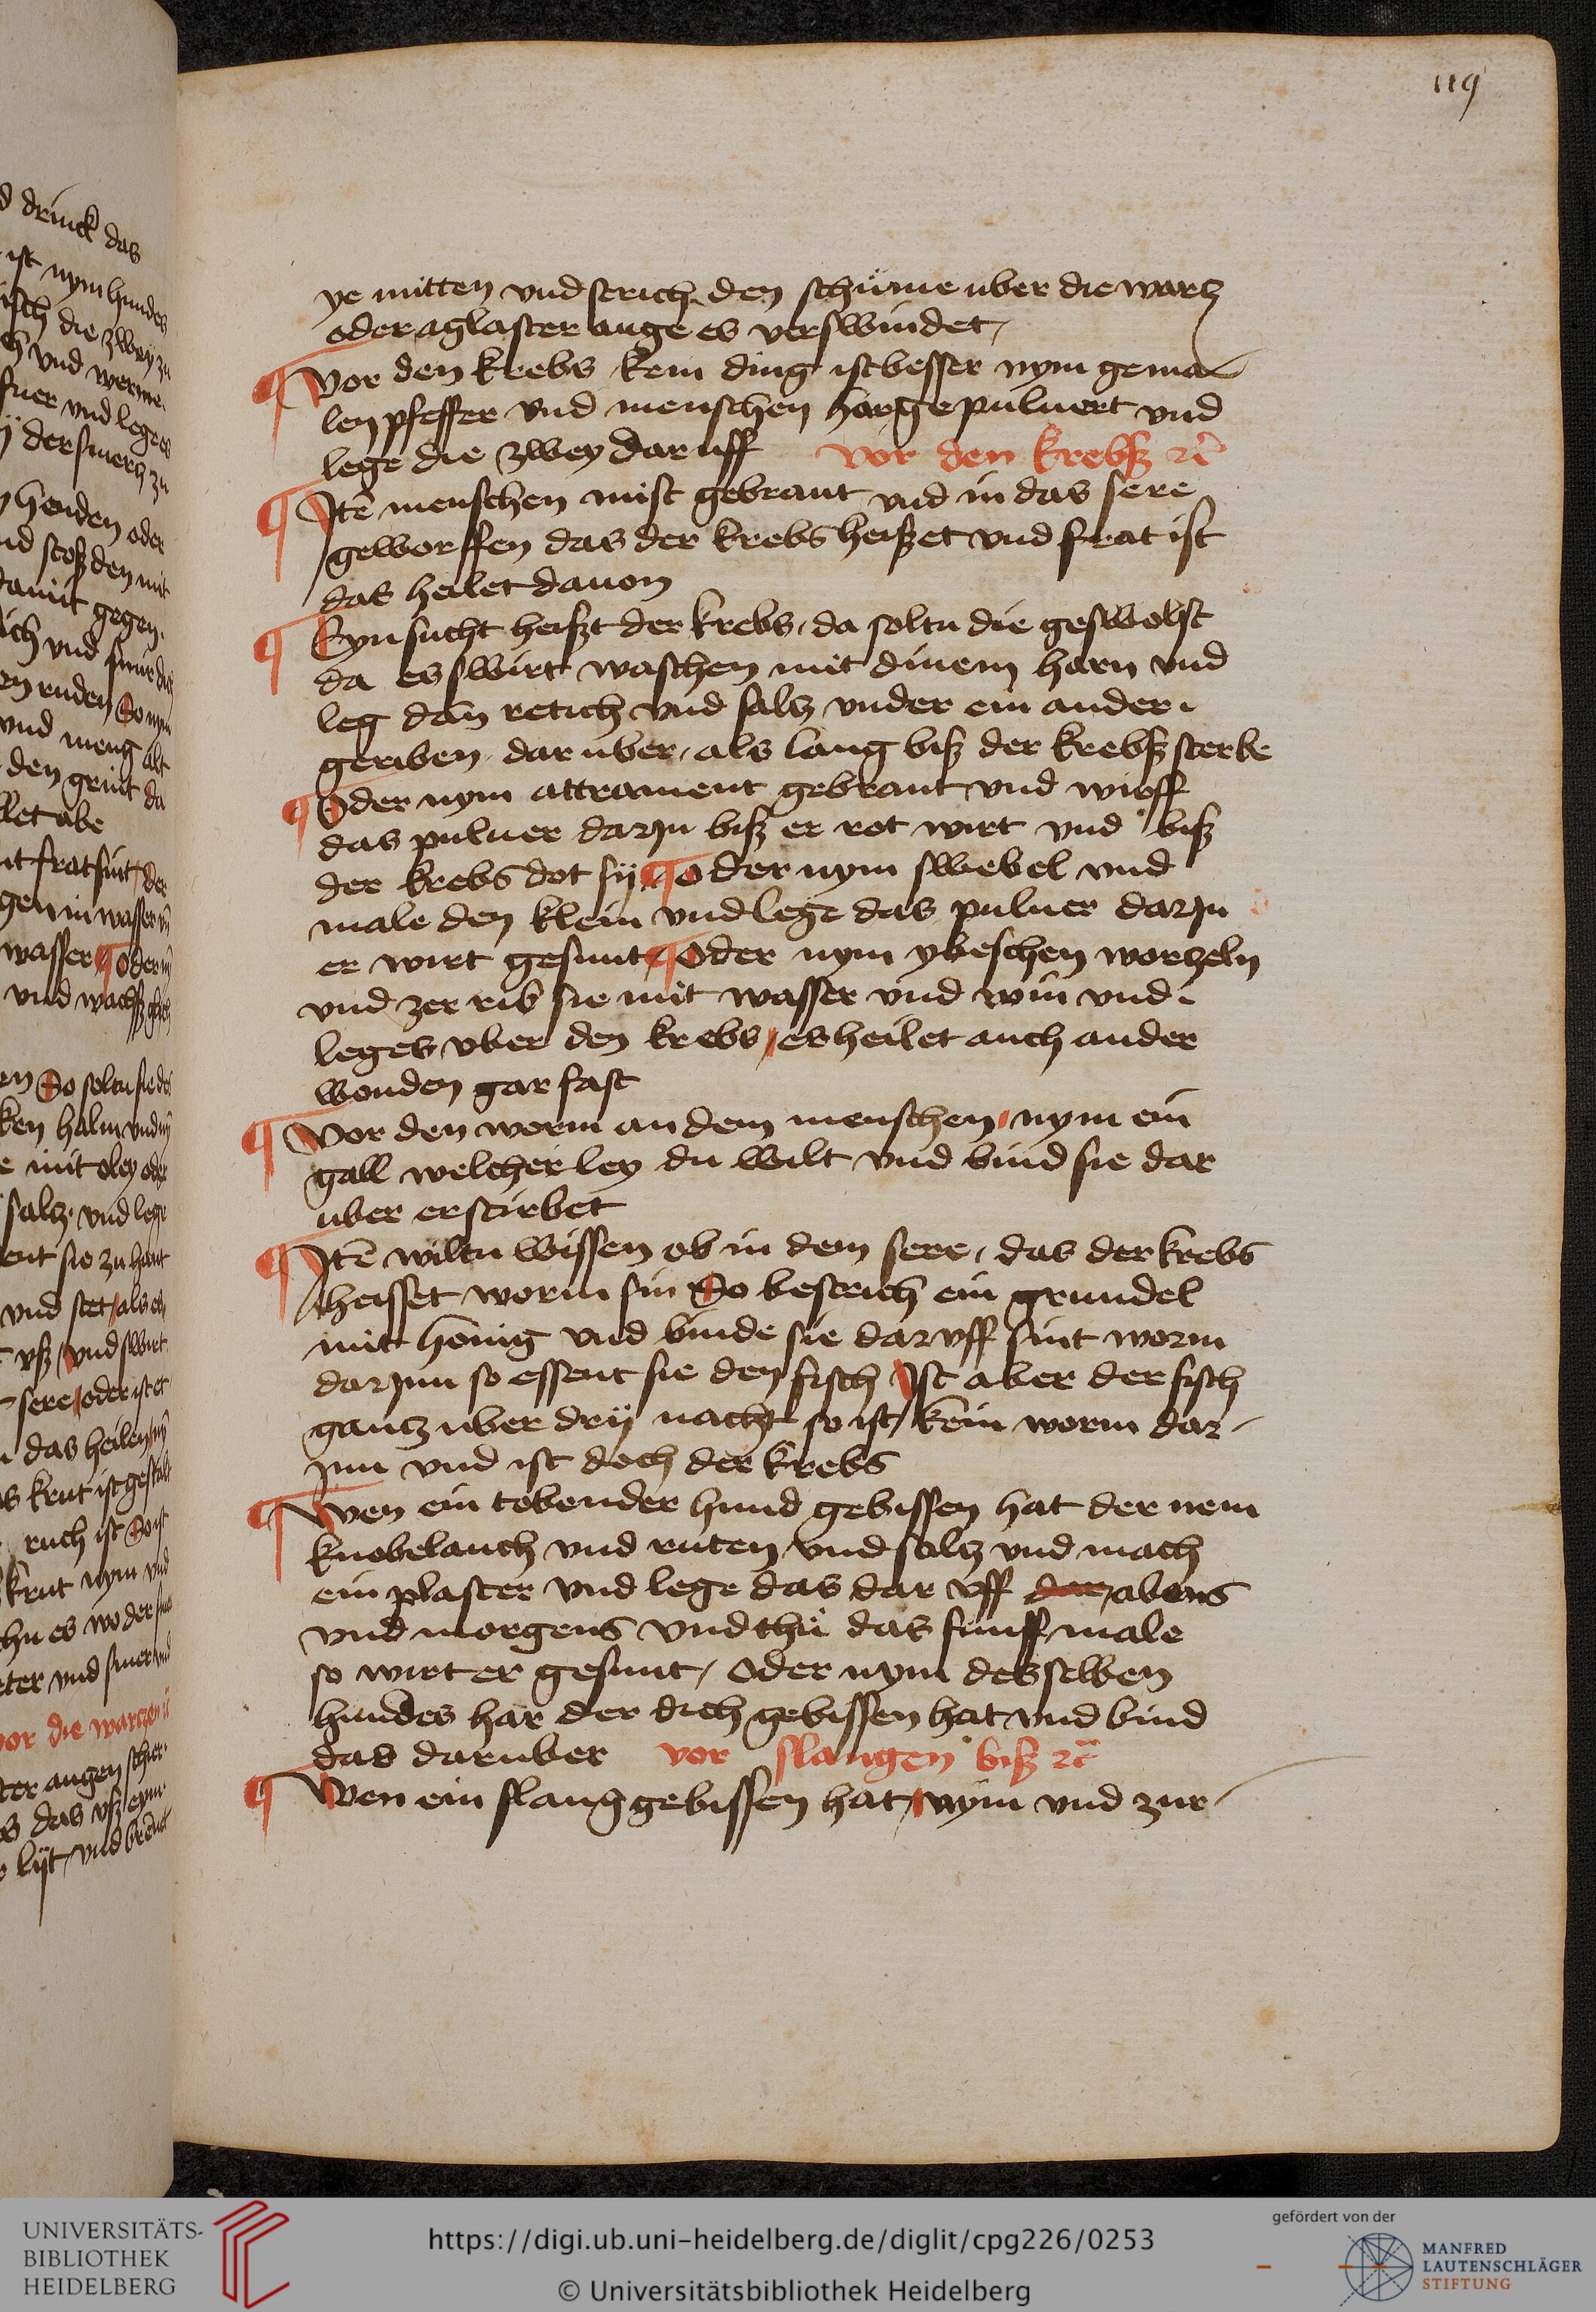 119
ye mitten vnd strich den schüme uber die wartz
oder aglaster auge es verswindet
¶ Vor den krebs kein ding ist besser nym gema
len pfeffer vnd menschen har gepuluert vnd
lege die zwey dar uff vor den krebß ꝛc̄
¶ Itē menschen mist gebrant vnd in das sere
geworffen das der krebs heißet vnd frat ist
das heilet dauon
¶ Eyn sucht heißt der krebs, da soltu die geswolst
da es swirt waschen mit dinem harn vnd
leg dan̄ retich vnd saltz vnder ein ander
geriben dar uber, als lang biß der krebß sterbe
¶ Oder nym attrament gebrant vnd wirff
das puluer darJn biß er rot wirt vnd biß
der krebs dot sÿ ¶ oder nym swebel vnd
male den klein vnd lege das puluer darJn
er wirt gesunt ¶ oder nym ybeschen wortzeln
vnd zer rib sie mit wasser vnd win vnd
leges vber den krebs / es heilet auch ander
wonden gar fast
¶ Vor den worm an dem menschen / nym ein
gall welcher ley du wilt vnd bind sie dar
uber er stirbet
¶ Itē wiltu wissen ob in dem sere, das der krebs
heisset worm sin So bestrich ein grundel
mit honig vnd binde sie dar vff sint worm
darJnn so essent sie den fisch Ist aber der fisch
gantz uber drÿ nacht so ist kein worm dar-
Jnn vnd ist doch der krebs
¶ Wen ein tobender hund gebissen hat der nem
knobelauch vnd ruten vnd saltz vnd mach
ein plaster vnd lege das dar vff abens
vnd morgens vnd thü das funff male
so wirt er gesunt / oder nym desselben
hundes har der dich gebissen hat vnd bind
das daruber vor slangen biß ꝛc̄
¶ Wen ein slang gebissen hat / nym vnd zur-
UNIVERSITÄTS-
BIBLIOTHEK
HEIDELBERG
https://digi.ub.uni-heidelberg.de/diglit/cpg226/0253
© Universitätsbibliothek Heidelberg
gefördert von der
MANFRED
LAUTENSCHLÄGER
STIFTUNG